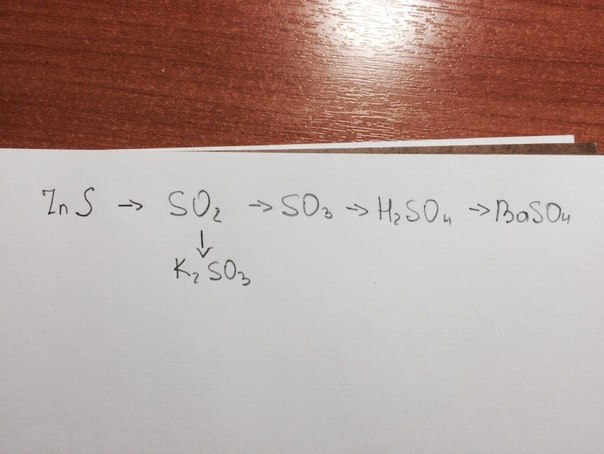 ZnS → SO₂ → SO₃ → H₂SO₄ → BaSO₄
↓
K₂SO₃